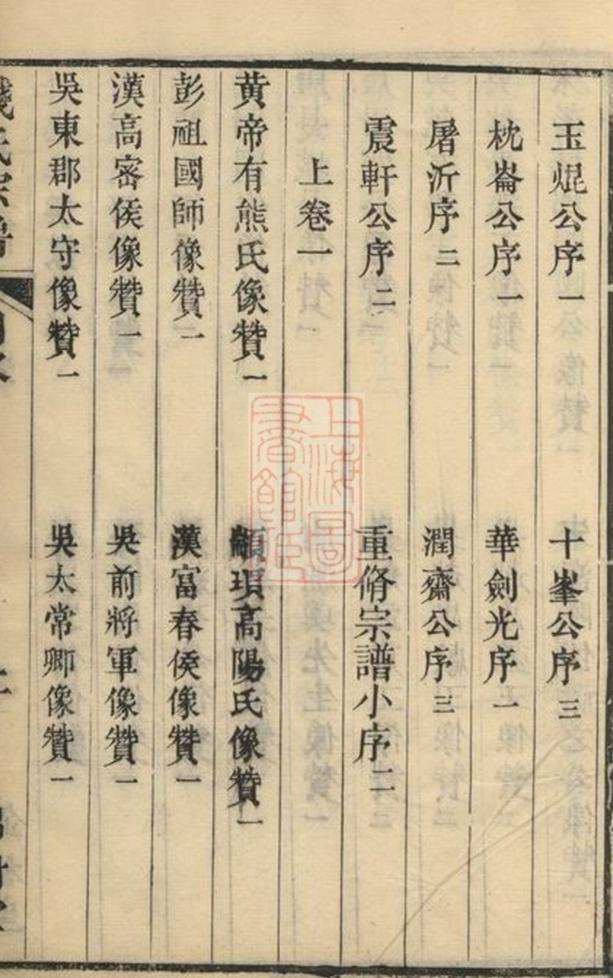 玉焜公序一
十峯公序三
枕崙公序一
華劍光序一
屠沂序二
潤齋公序三
震軒公序二
重脩宗譜小序二
上卷一
黃帝有熊氏像贊一
顓頊高陽氏像贊一
彭祖國師像贊一
漢富春侯像贊一
漢高密侯像贊一
吳前將軍像贊一
吳東郡太守像贊一
吳太常卿像贊一
錢氏宗譜
上海圖書館藏